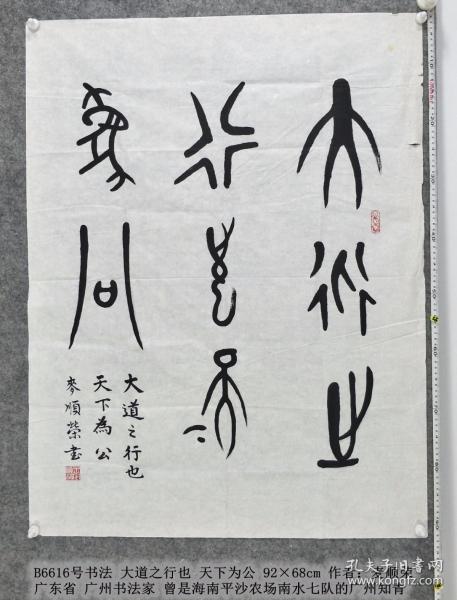 大道之
行也天下
為公
大道之行也
天下為公
麥順榮書
B6616号书法 大道之行也 天下为公 92×68cm 作者：麦顺荣
广东省 广州书法家 曾是海南平沙农场南水七队的广州知青
孔夫子旧书网